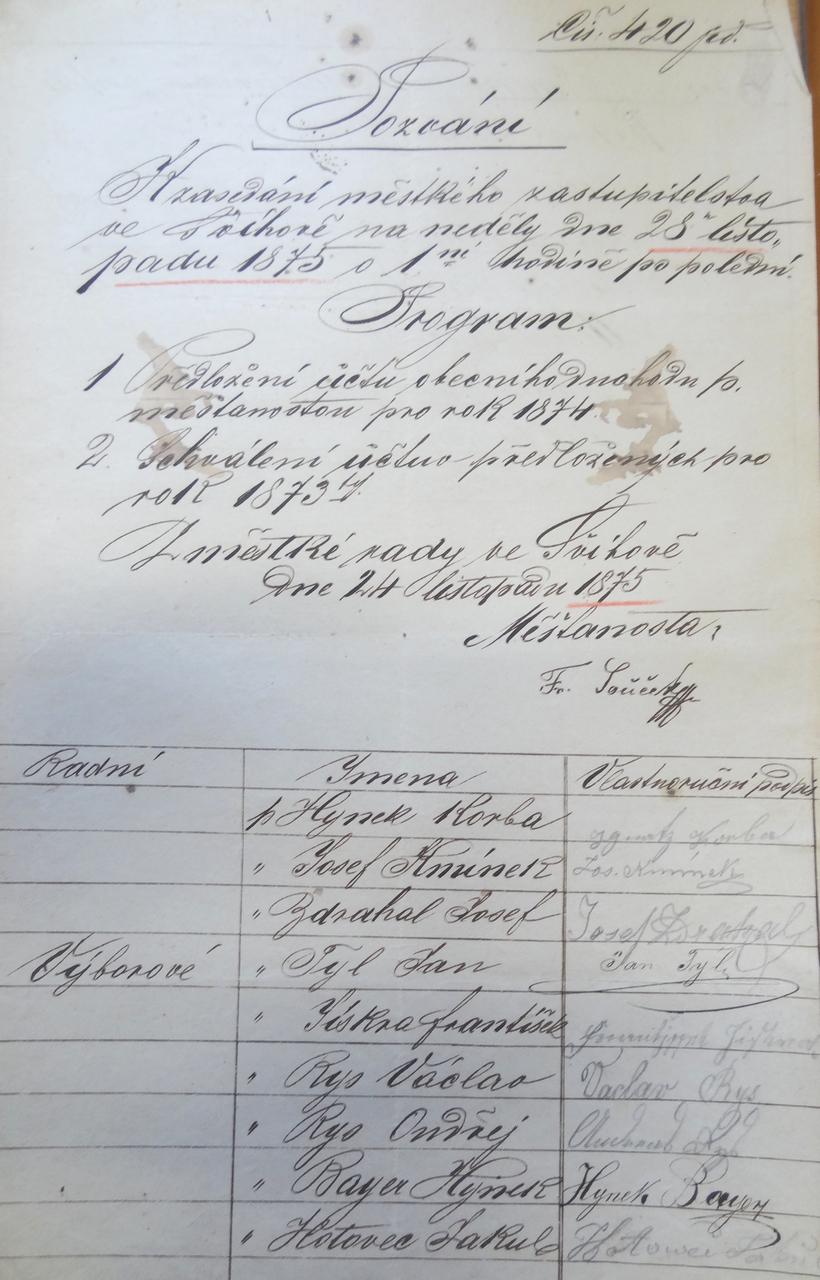 Čís. 420 pd.
Pozvání
K zasedání městkého zastupitelstva
ve Švihově na neděly dne 28ho listo„
padu 1875 o 1ní hodině po polední.
Program:
1 Předložení účtů obecního duchodu p.
měšťanostou pro rok 1874.
2. Schválení účtuv předložených pro
rok 1873
Z městké rady ve Švihově
dne 24 listopadu 1875
Měšťanosta:
Fr. Souček
Radní Jmena Vlastnoruční podpis
p Hynek Korba Ignatz Korba
„ Josef Kmínek Jos. Kmínek
„ Zdrahal Josef Josef Zdrahal
Výborové „ Tyl Jan Jan Tyl
„ Jiskra František
„ Rys Václav Vaclav Rys
„ Rys Ondřej Andreas Rys
„ Bayer Hynek Hynek Bayer
„ Hotovec Jakub Hottowec Jakub